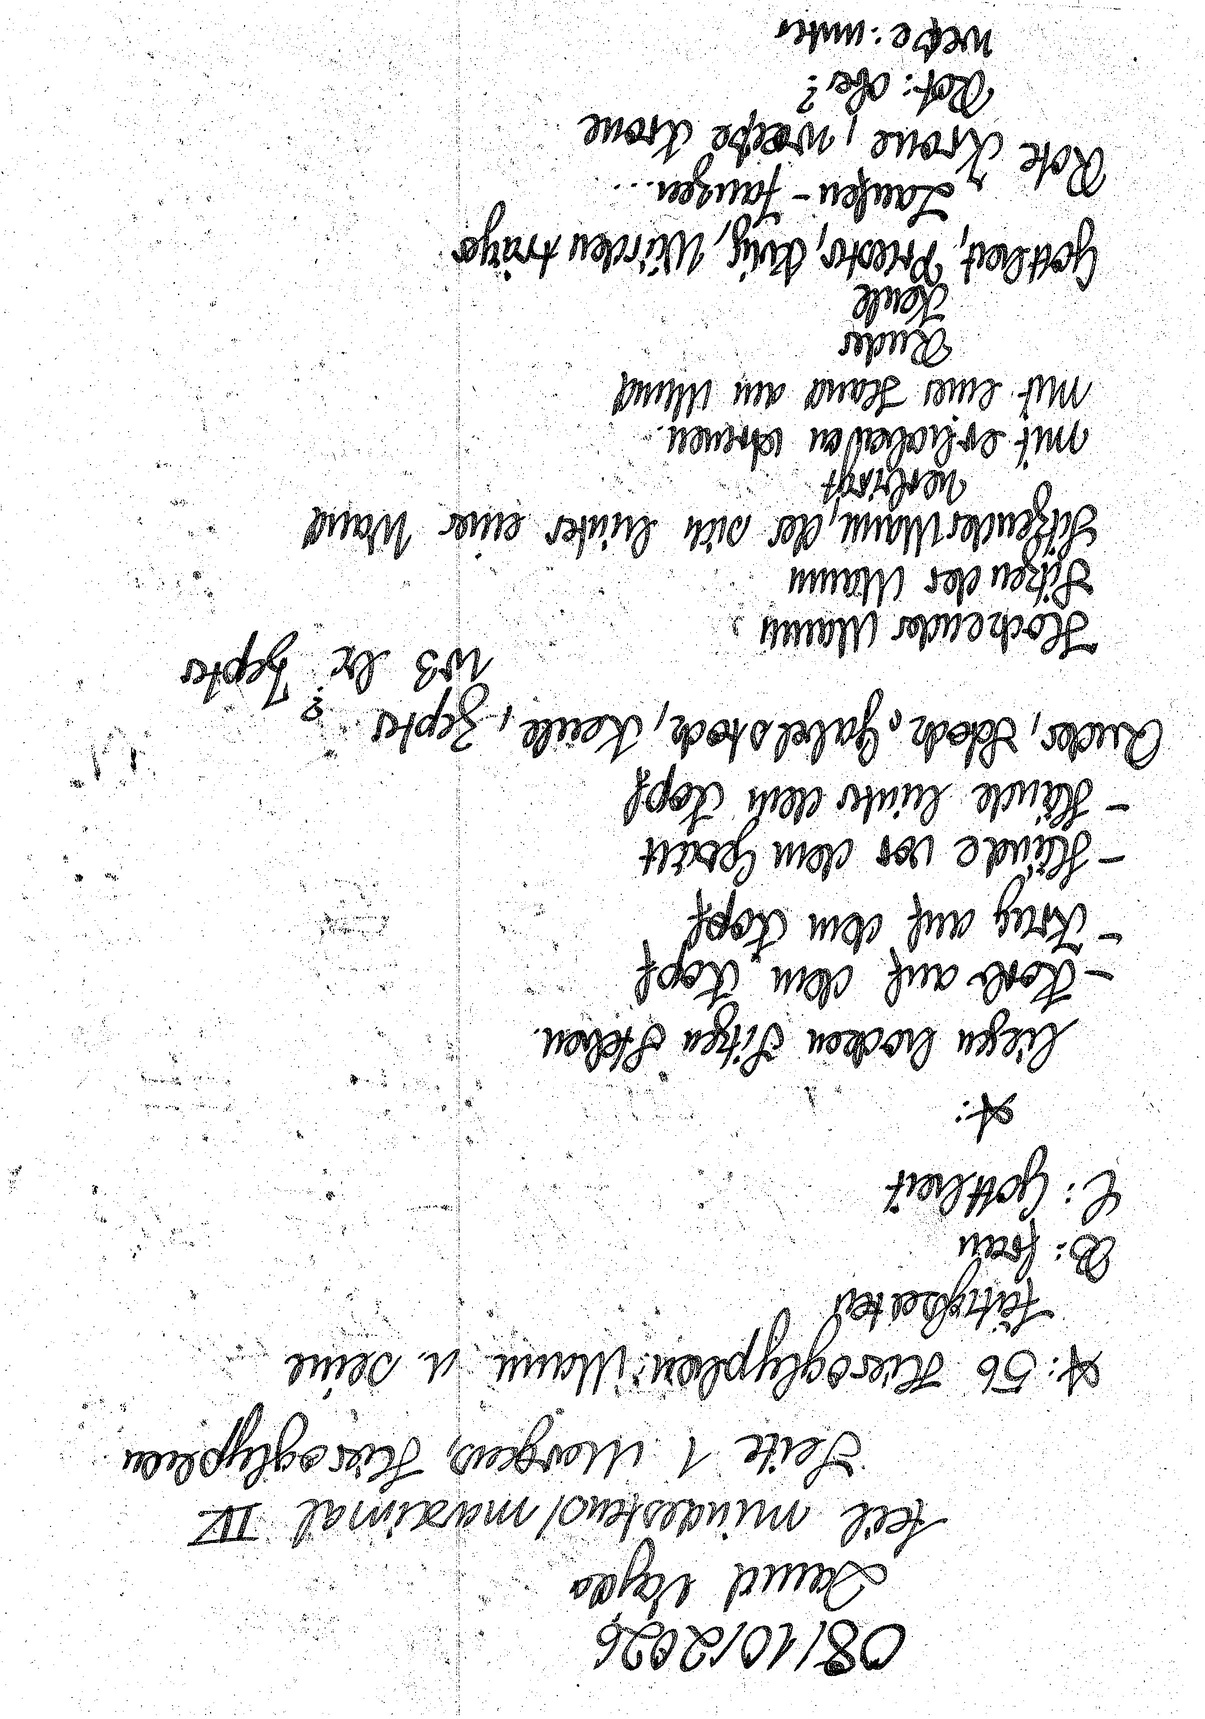 08/10/2026
David Vajda
teil mindestens/maximal IV
Seite 1 Margeus, Hieroglyphen
A: 56 Hieroglyphen: Mann u. seine
Tätigkeiten
B: Frau
C: Gottheit
A:
liegen hocken Sitzen Stehen.
- Korb auf dem Kopf
- Krug auf dem Kopf
- Hände vor dem Gesäß
- Hände hinter dem Kopf
Ruder, Stock, Gabelstock, Keule, Zepter
? Zepter
Hockender Mann
Sitzender Mann
Sitzender Mann, der sich hinter einer Wand
verbirgt
mit erhobenen Armen.
mit einer Hand am Mund
Ruder
Keule
Gottheit, Priester, König, Würdenträger
Laufen - Tanzen...
Rote Krone, weiße Krone
Rot: obe?
weiße: unter